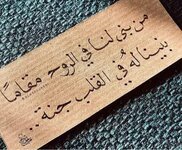 من بنى لنا في الروح مقاماً
بنينا لهُ في القلب جنة...